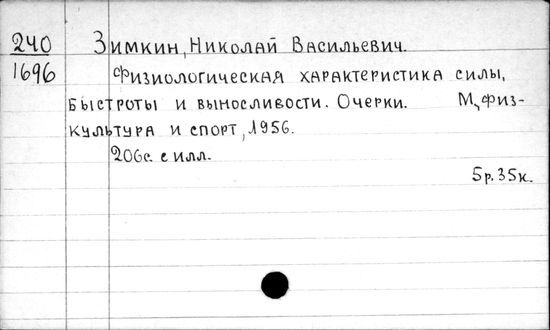 240
1696
Зимкин, Николай Васильевич.
Физиологическая характеристика силы,
быстроты и выносливости. Очерки. М., Физ-
культура и спорт, 1956.
206с. с илл.
5р. 35к.